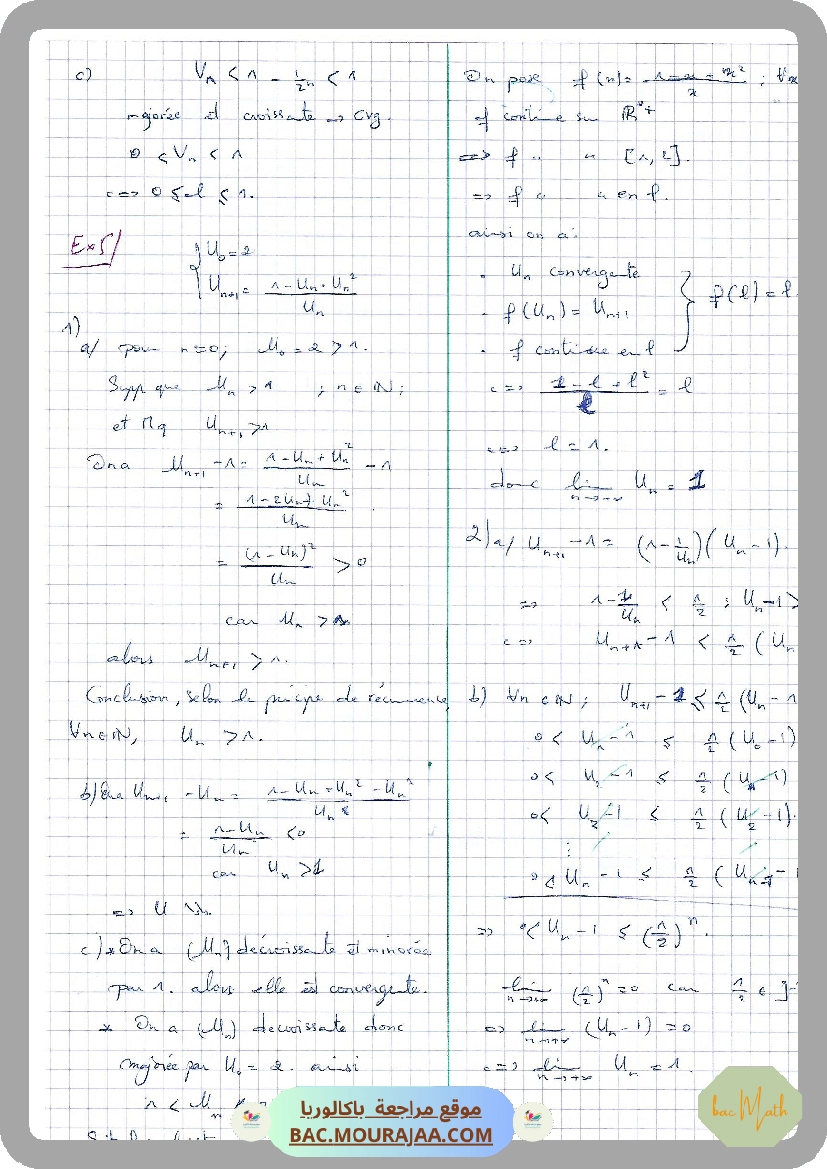 c) Vn < 1 - 1/2^n < 1
majorée et croissante → cvg.
0 < Vn < 1
<=> 0 ≤ l ≤ 1.
Ex5/
{ U0 = 2
Un+1 = (1 - Un + Un²)/Un
1)
a/ pour n=0; U0 = 2 > 1.
Supp que Un > 1 ; n ∈ IN ;
et Mq Un+1 > 1
Ona Un+1 - 1 = (1 - Un + Un²)/Un - 1
= (1 - 2Un + Un²)/Un
= (1 - Un)²/Un > 0
car Un > 1
alors Un+1 > 1.
Conclusion, selon le principe de récurrence
∀n∈IN, Un > 1.
b) Ona Un+1 - Un = (1 - Un + Un² - Un²)/Un
= (1 - Un)/Un < 0
car Un > 1
=> U ↘.
c) * On a (Un) décroissante et minorée
par 1. alors elle est convergente.
* On a (Un) decroissate donc
majorée par U0 = 2. ainsi
1 < Un
On pose f(x) = (1 - x + x²)/x ; ∀x
f contine sur IR*+
=> f " " [1, 2].
=> f " " en l.
ainsi on a:
. Un convergente
. f(Un) = Un+1 } f(l) = l
. f continue en l
<=> (1 - l + l²)/l = l
<=> l = 1.
donc lim n→+∞ Un = 1
2) a/ Un+1 - 1 = (1 - 1/Un)(Un - 1).
=> 1 - 1/Un < 1/2 ; Un - 1 >
<=> Un+1 - 1 < 1/2 (Un
b) ∀n ∈ IN ; Un+1 - 1 ≤ 1/2 (Un - 1
0 < U1 - 1 ≤ 1/2 (U0 - 1)
0 < U2 - 1 ≤ 1/2 (U1 - 1)
0 < U3 - 1 ≤ 1/2 (U2 - 1).
⋮
0 < Un - 1 ≤ 1/2 (Un-1 - 1
=> 0 < Un - 1 ≤ (1/2)^n.
lim n→+∞ (1/2)^n = 0 car 1/2 ∈ ]-
=> lim n→+∞ (Un - 1) = 0
<=> lim n→+∞ Un = 1.
موقع مراجعة باكالوريا
BAC.MOURAJAA.COM
bac Math